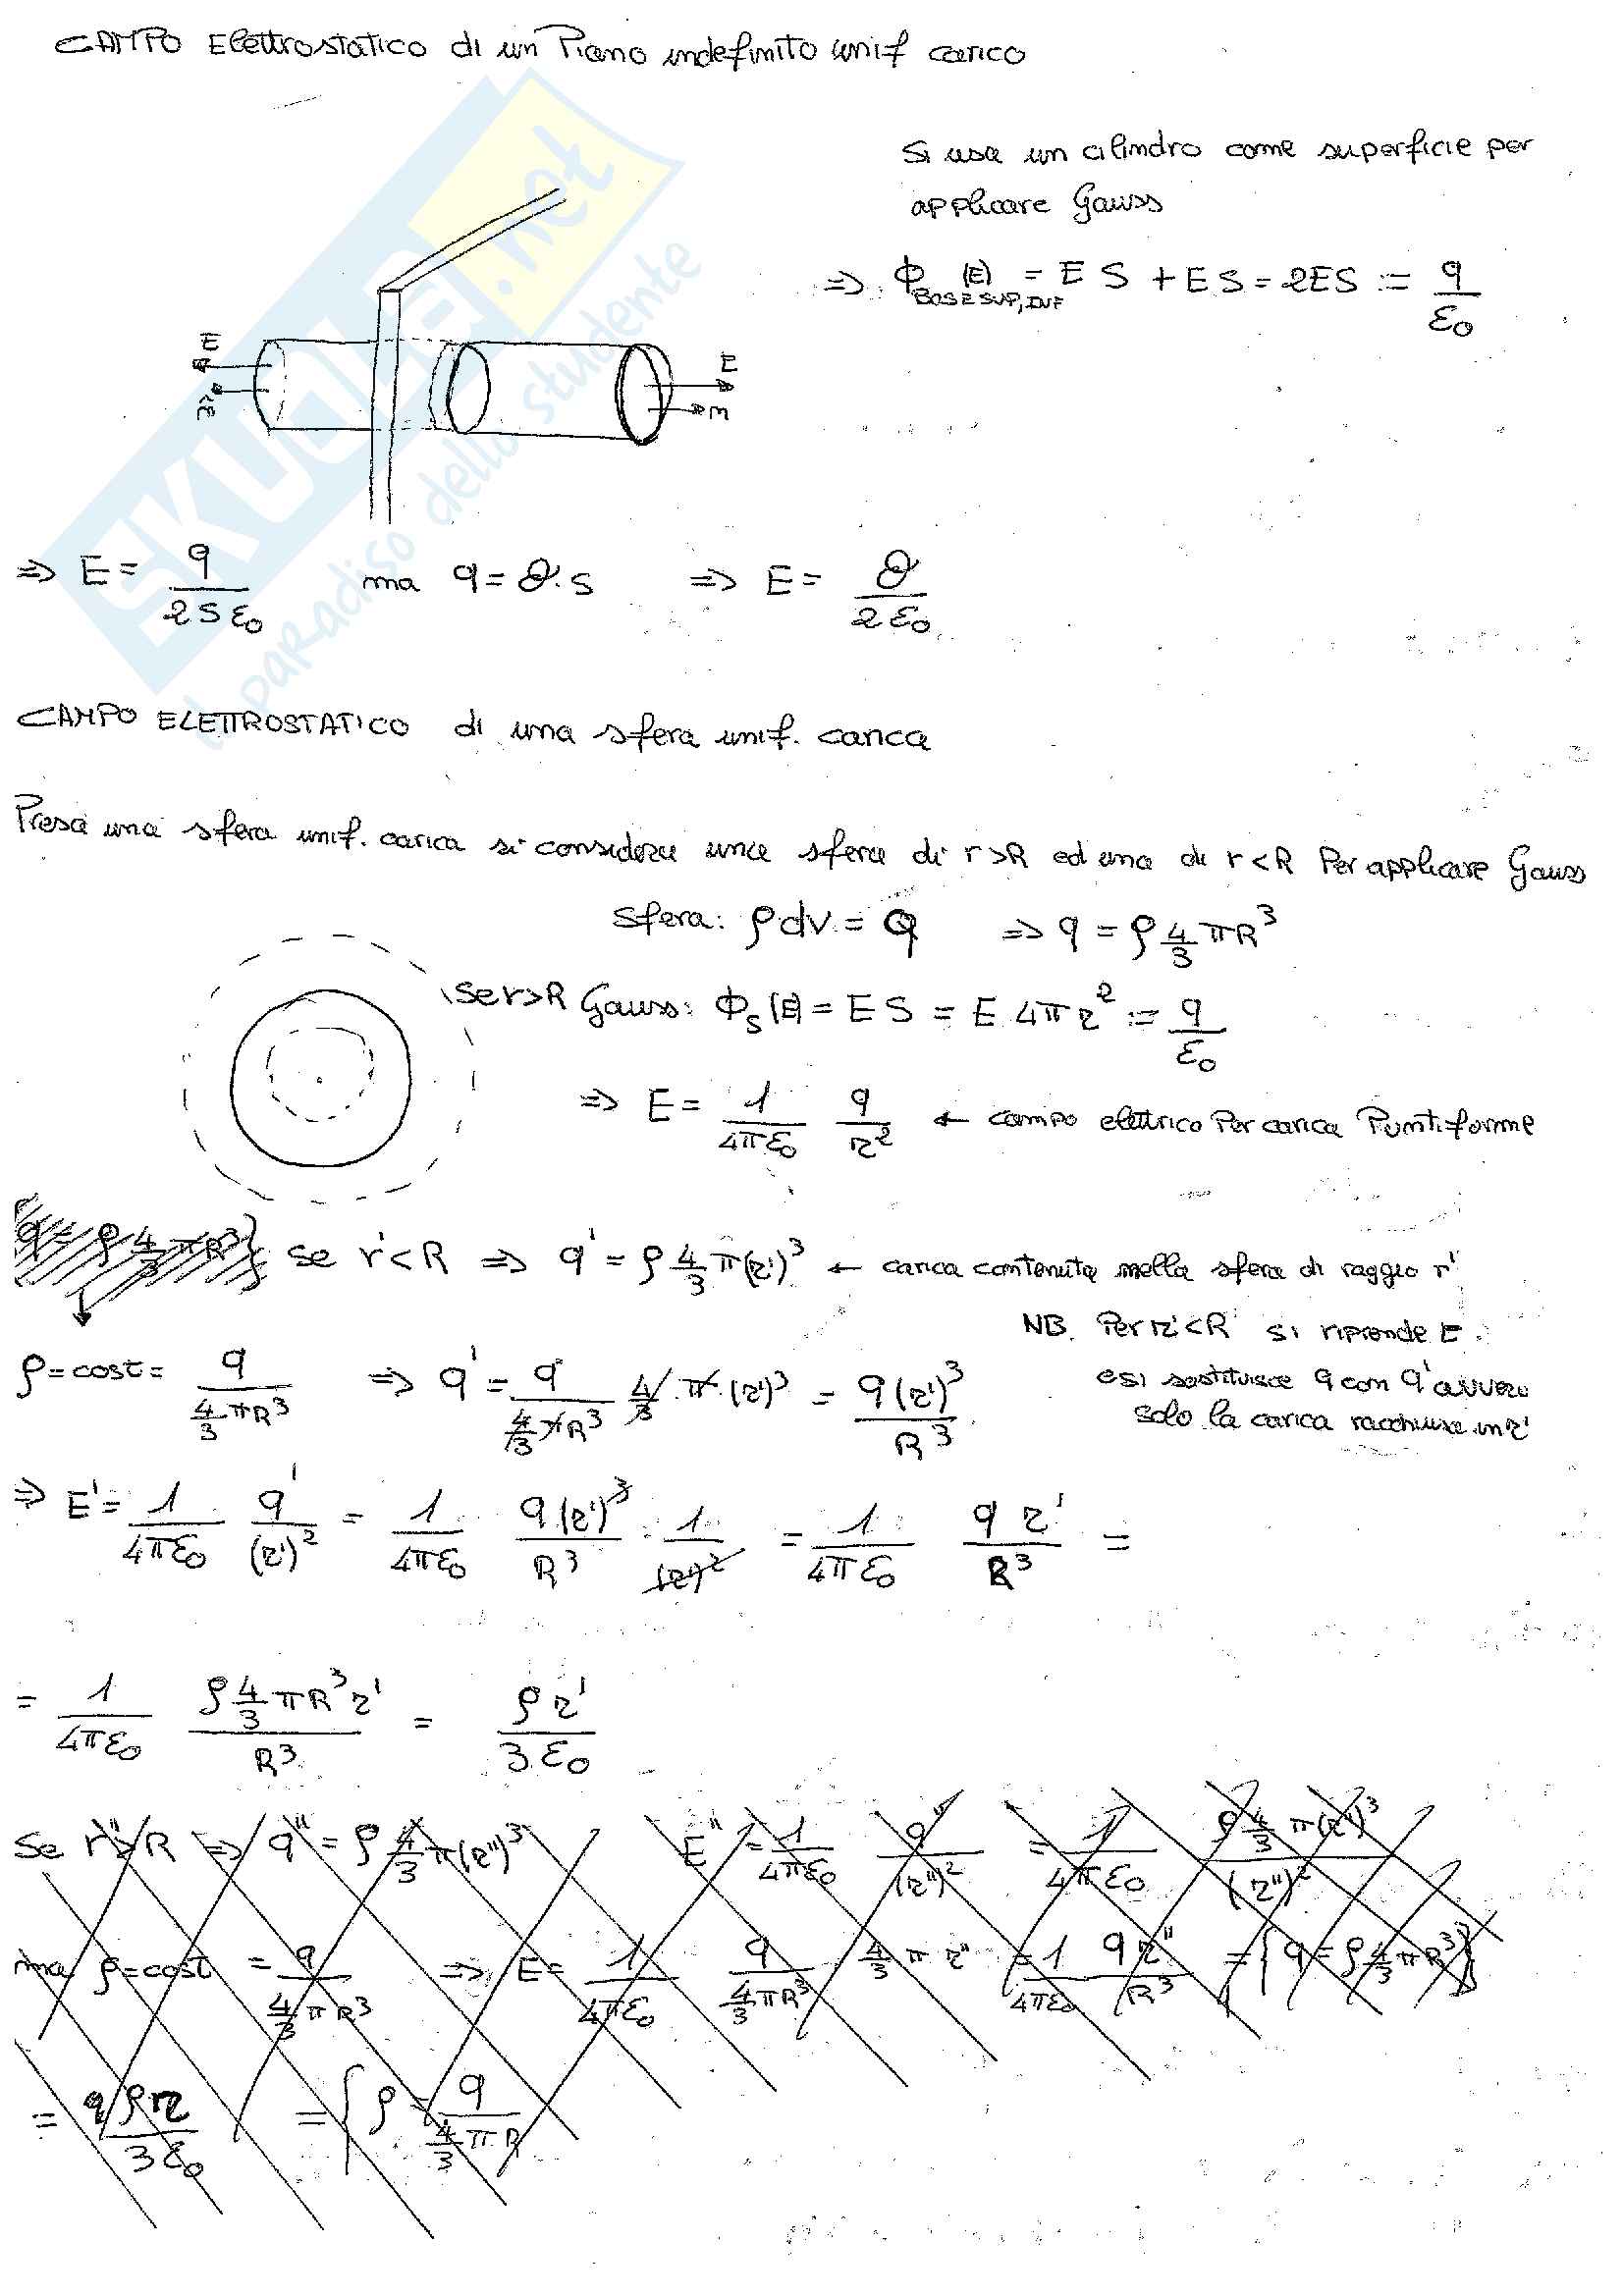 CAMPO Elettrostatico di un Piano indefinito unif carico
SKUOLA.net
il paradiso dello studente
Si usa un cilindro come superficie per
applicare Gauss
=> Φ BASE SUP, INF (E) = E S + E S = 2ES := q/ε₀
E
n
E
n
=> E = q/(2Sε₀) ma q = σ·S => E = σ/(2ε₀)
CAMPO ELETTROSTATICO di una sfera unif. carica
Presa una sfera unif. carica si considera una sfera di r>R ed una di r<R Per applicare Gauss
sfera: ρ dv = Q => q = ρ 4/3 πR³
Se r>R Gauss: Φₛ(E) = E S = E 4πr² := q/ε₀
=> E = 1/(4πε₀) q/r² ← campo elettrico Per carica Puntiforme
q = ρ 4/3 πR³} se r'<R => q' = ρ 4/3 π(r')³ ← carica contenuta nella sfera di raggio r'
NB. Per r'<R si riprende E
e si sostituisce q con q' avvero
solo la carica racchiusa in r'
ρ = cost = q/(4/3 πR³) => q' = q/(4/3 πR³) 4/3 · π · (r')³ = q(r')³/R³
=> E' = 1/(4πε₀) q'/(r')² = 1/(4πε₀) q(r')³/R³ · 1/(r')² = 1/(4πε₀) q r'/R³ =
= 1/(4πε₀) ρ 4/3 πR³ r'/R³ = ρ r'/(3ε₀)
Se r''>R => q'' = ρ 4/3 π(r'')³ E'' = 1/(4πε₀) q''/(r'')² = 1/(4πε₀) ρ 4/3 π(r'')³/(r'')²
ma ρ = cost = q/(4/3 πR³) => E = 1/(4πε₀) q/(4/3 πR³) 4/3 π r'' = 1/(4πε₀) q r''/R³ = {q = ρ 4/3 πR³}
= ρ r/(3ε₀) = {ρ = q/(4/3 πR